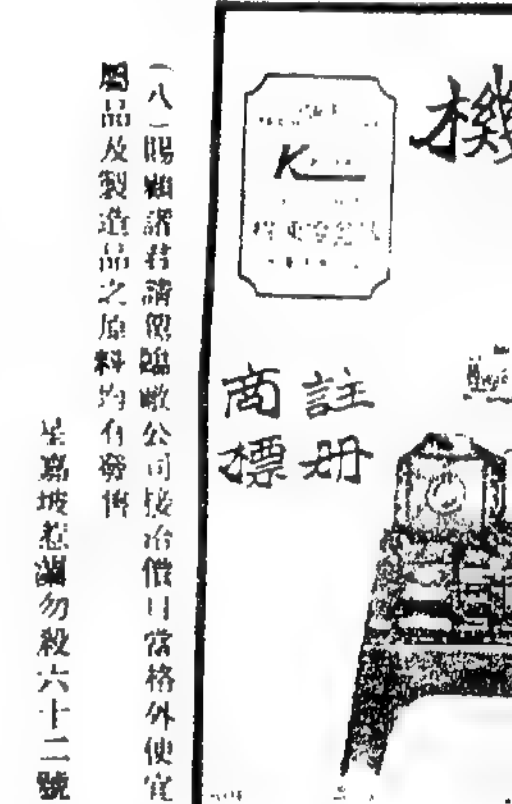 機
註冊
商標
K
(八)賜顧諸君請駕臨敝公司接洽價目當格外便宜
屬品及製造品之原料均有發售
星嘉坡惹蘭勿殺六十二號